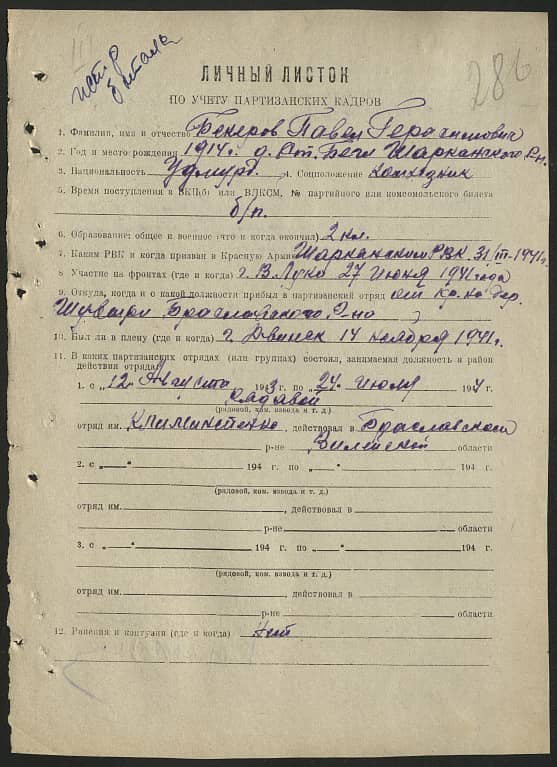 III
286
ЛИЧНЫЙ ЛИСТОК
ПО УЧЕТУ ПАРТИЗАНСКИХ КАДРОВ
1. Фамилия, имя и отчество Бекеров Павел Герасимович
2. Год и место рождения 1914г. д. Беги Шарканского Рн.
3. Национальность Удмурт. 4. Соцположение колхозник
5. Время поступления в ВКП(б) или ВЛКСМ, № партийного или комсомольского билета
б/п.
6. Образование: общее и военное (что и когда окончил) 2 кл.
7. Каким РВК и когда призван в Красную Армию Шарканским РВК 31/III-1941г.
8. Участие на фронтах (где и когда) г. В. Луки 27 Июня 1941 года
9. Откуда, когда и с какой должности прибыл в партизанский отряд
Браславского Р-на
10. Был ли в плену (где и когда) г. Двинск 14 ноября 1941г.
11. В каких партизанских отрядах (или группах) состоял, занимаемая должность и район
действия отряда)
1. с „12" Августа 1943 г. по „24" Июля 1944 г.
Рядавой
(рядовой, ком. взвода и т. д.)
отряд им. , действовал в Браславском
р-не Вилейской области
2. с „ " 194 г. по „ " 194 г.
(рядовой, ком. взвода и т. д.)
отряд им. , действовал в
р-не области
3. с „ " 194 г. по „ " 194 г.
(рядовой, ком. взвода и т. д.)
отряд им. , действовал в
р-не области
12. Ранения и контузии (где и когда) нет